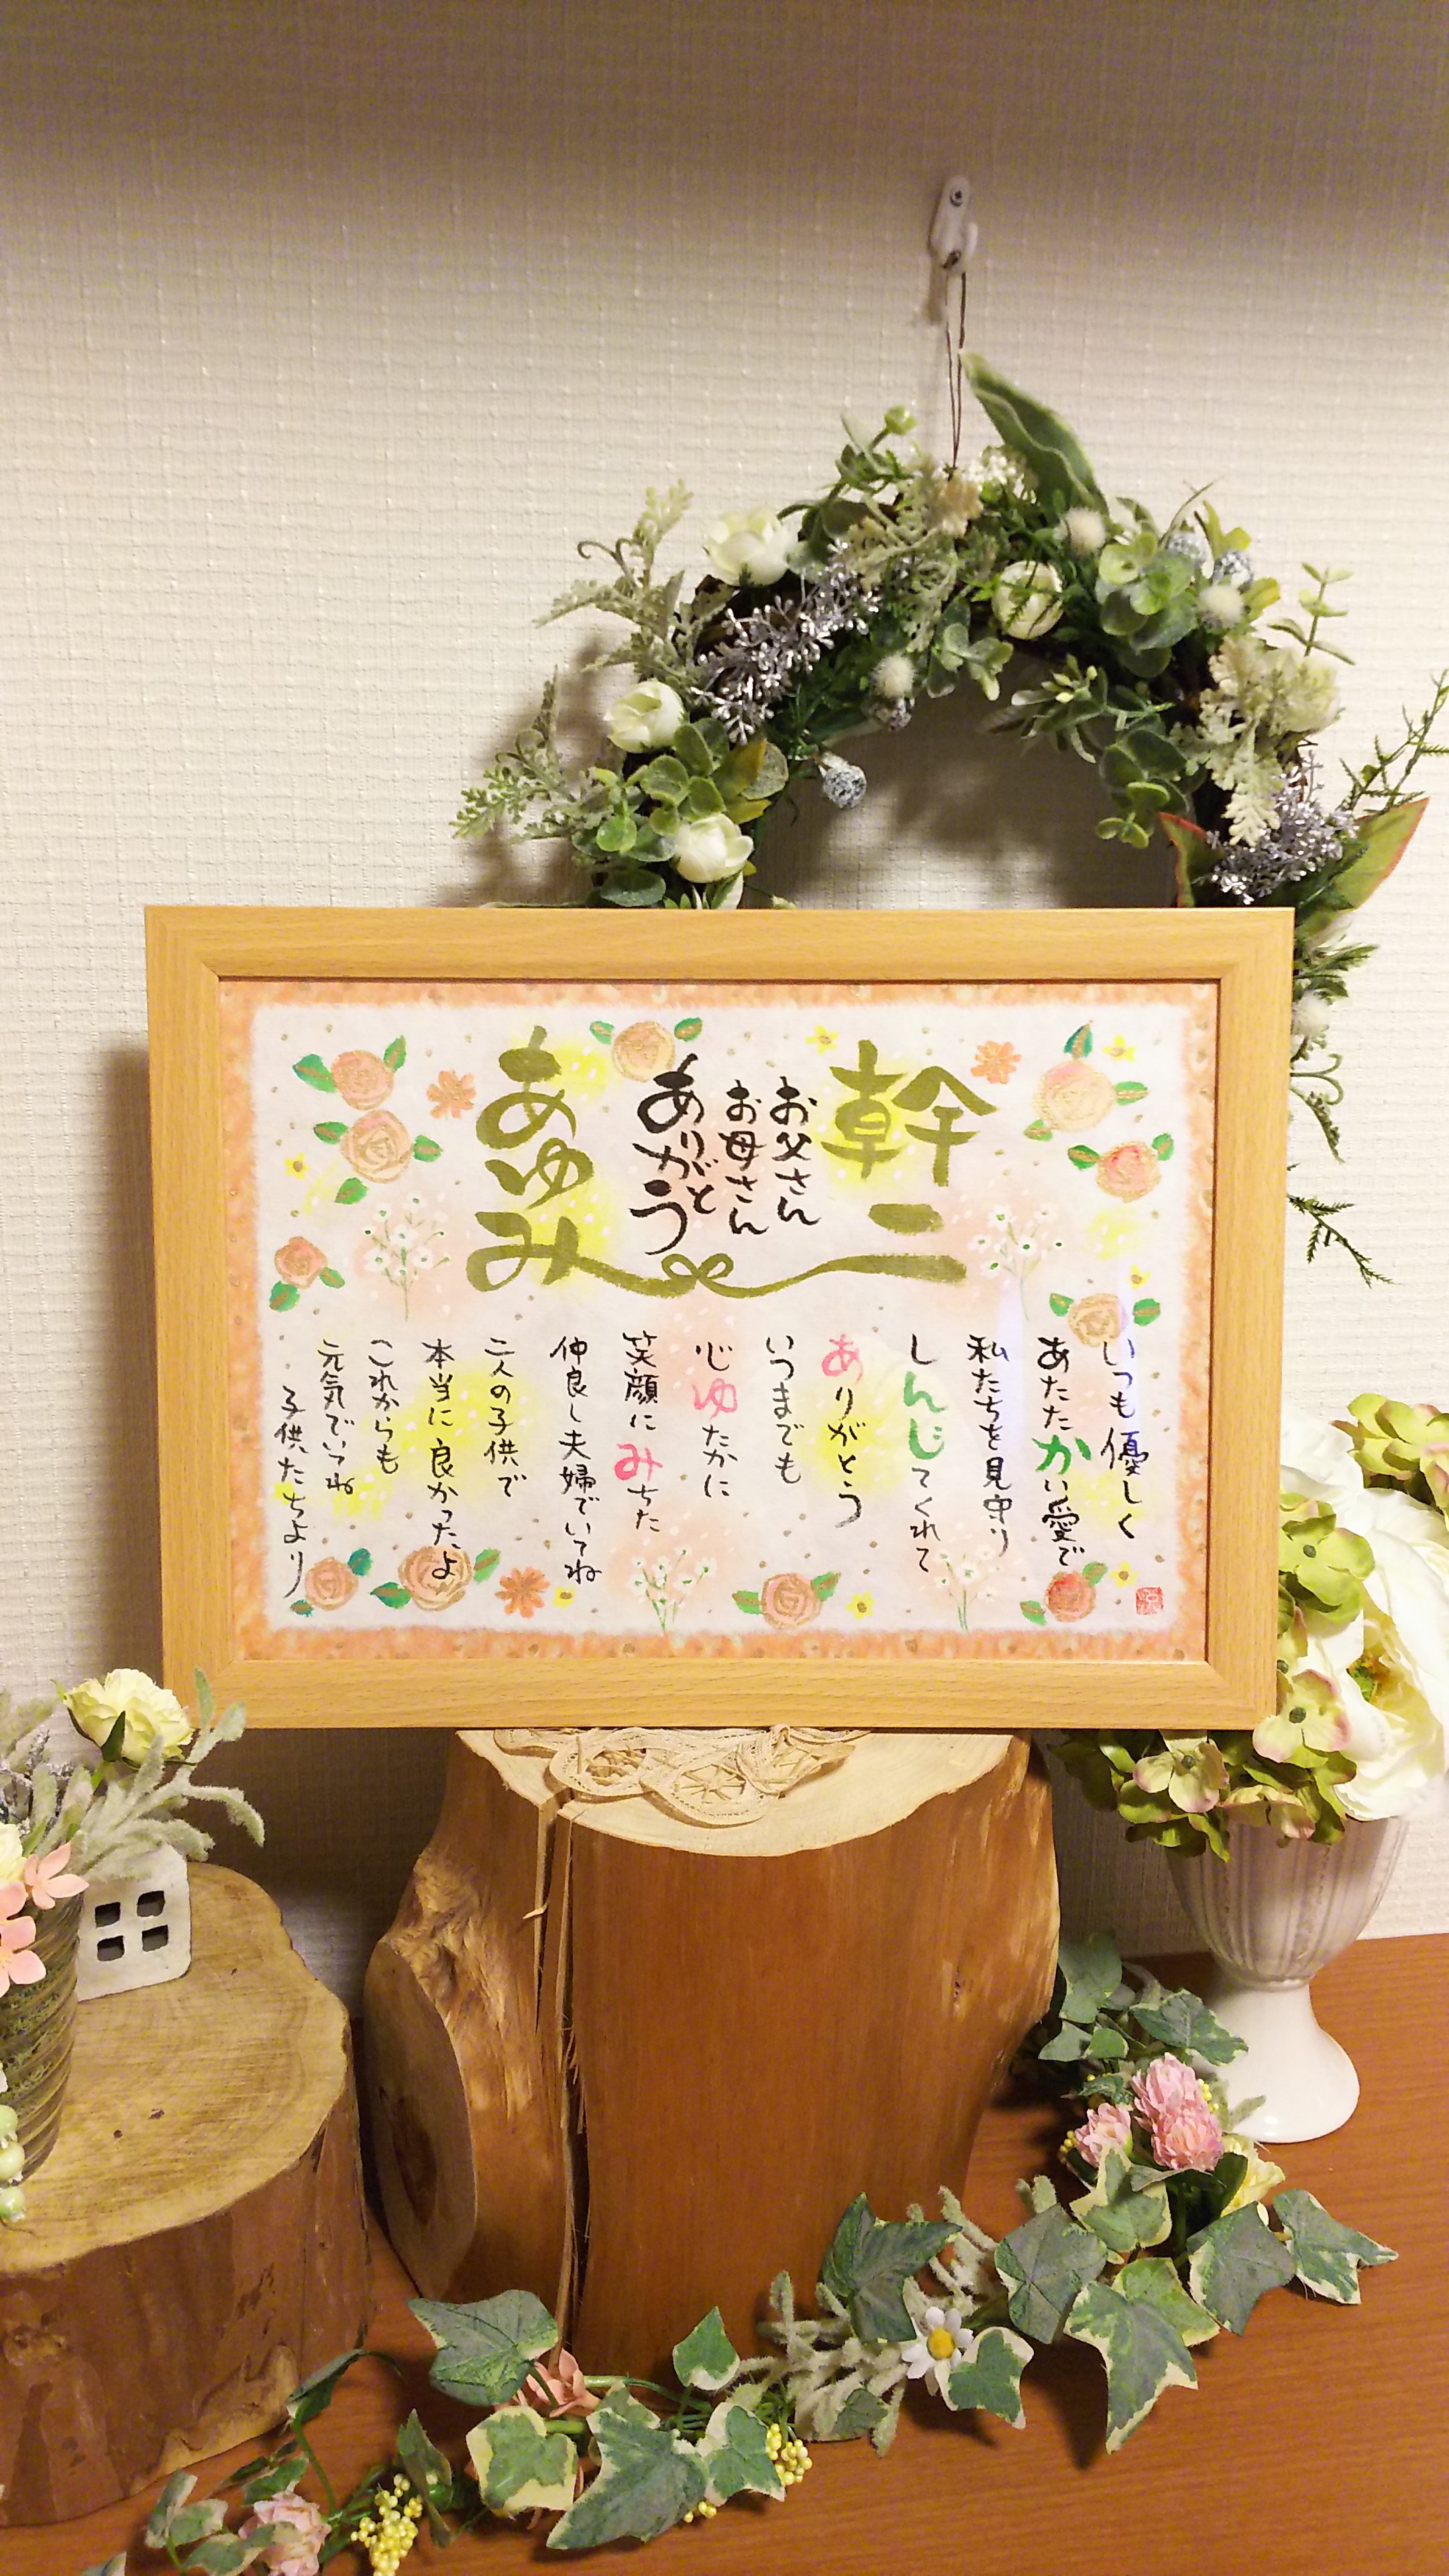 幹二
お父さん
お母さん
ありがとう
あゆみ
いつも優しく
あたたかい愛で
私たちを見守り
しんじてくれて
ありがとう
いつまでも
心ゆたかに
笑顔にみちた
仲良し夫婦でいてね
二人の子供で
本当に良かったよ
これからも
元気でいてね
子供たちより